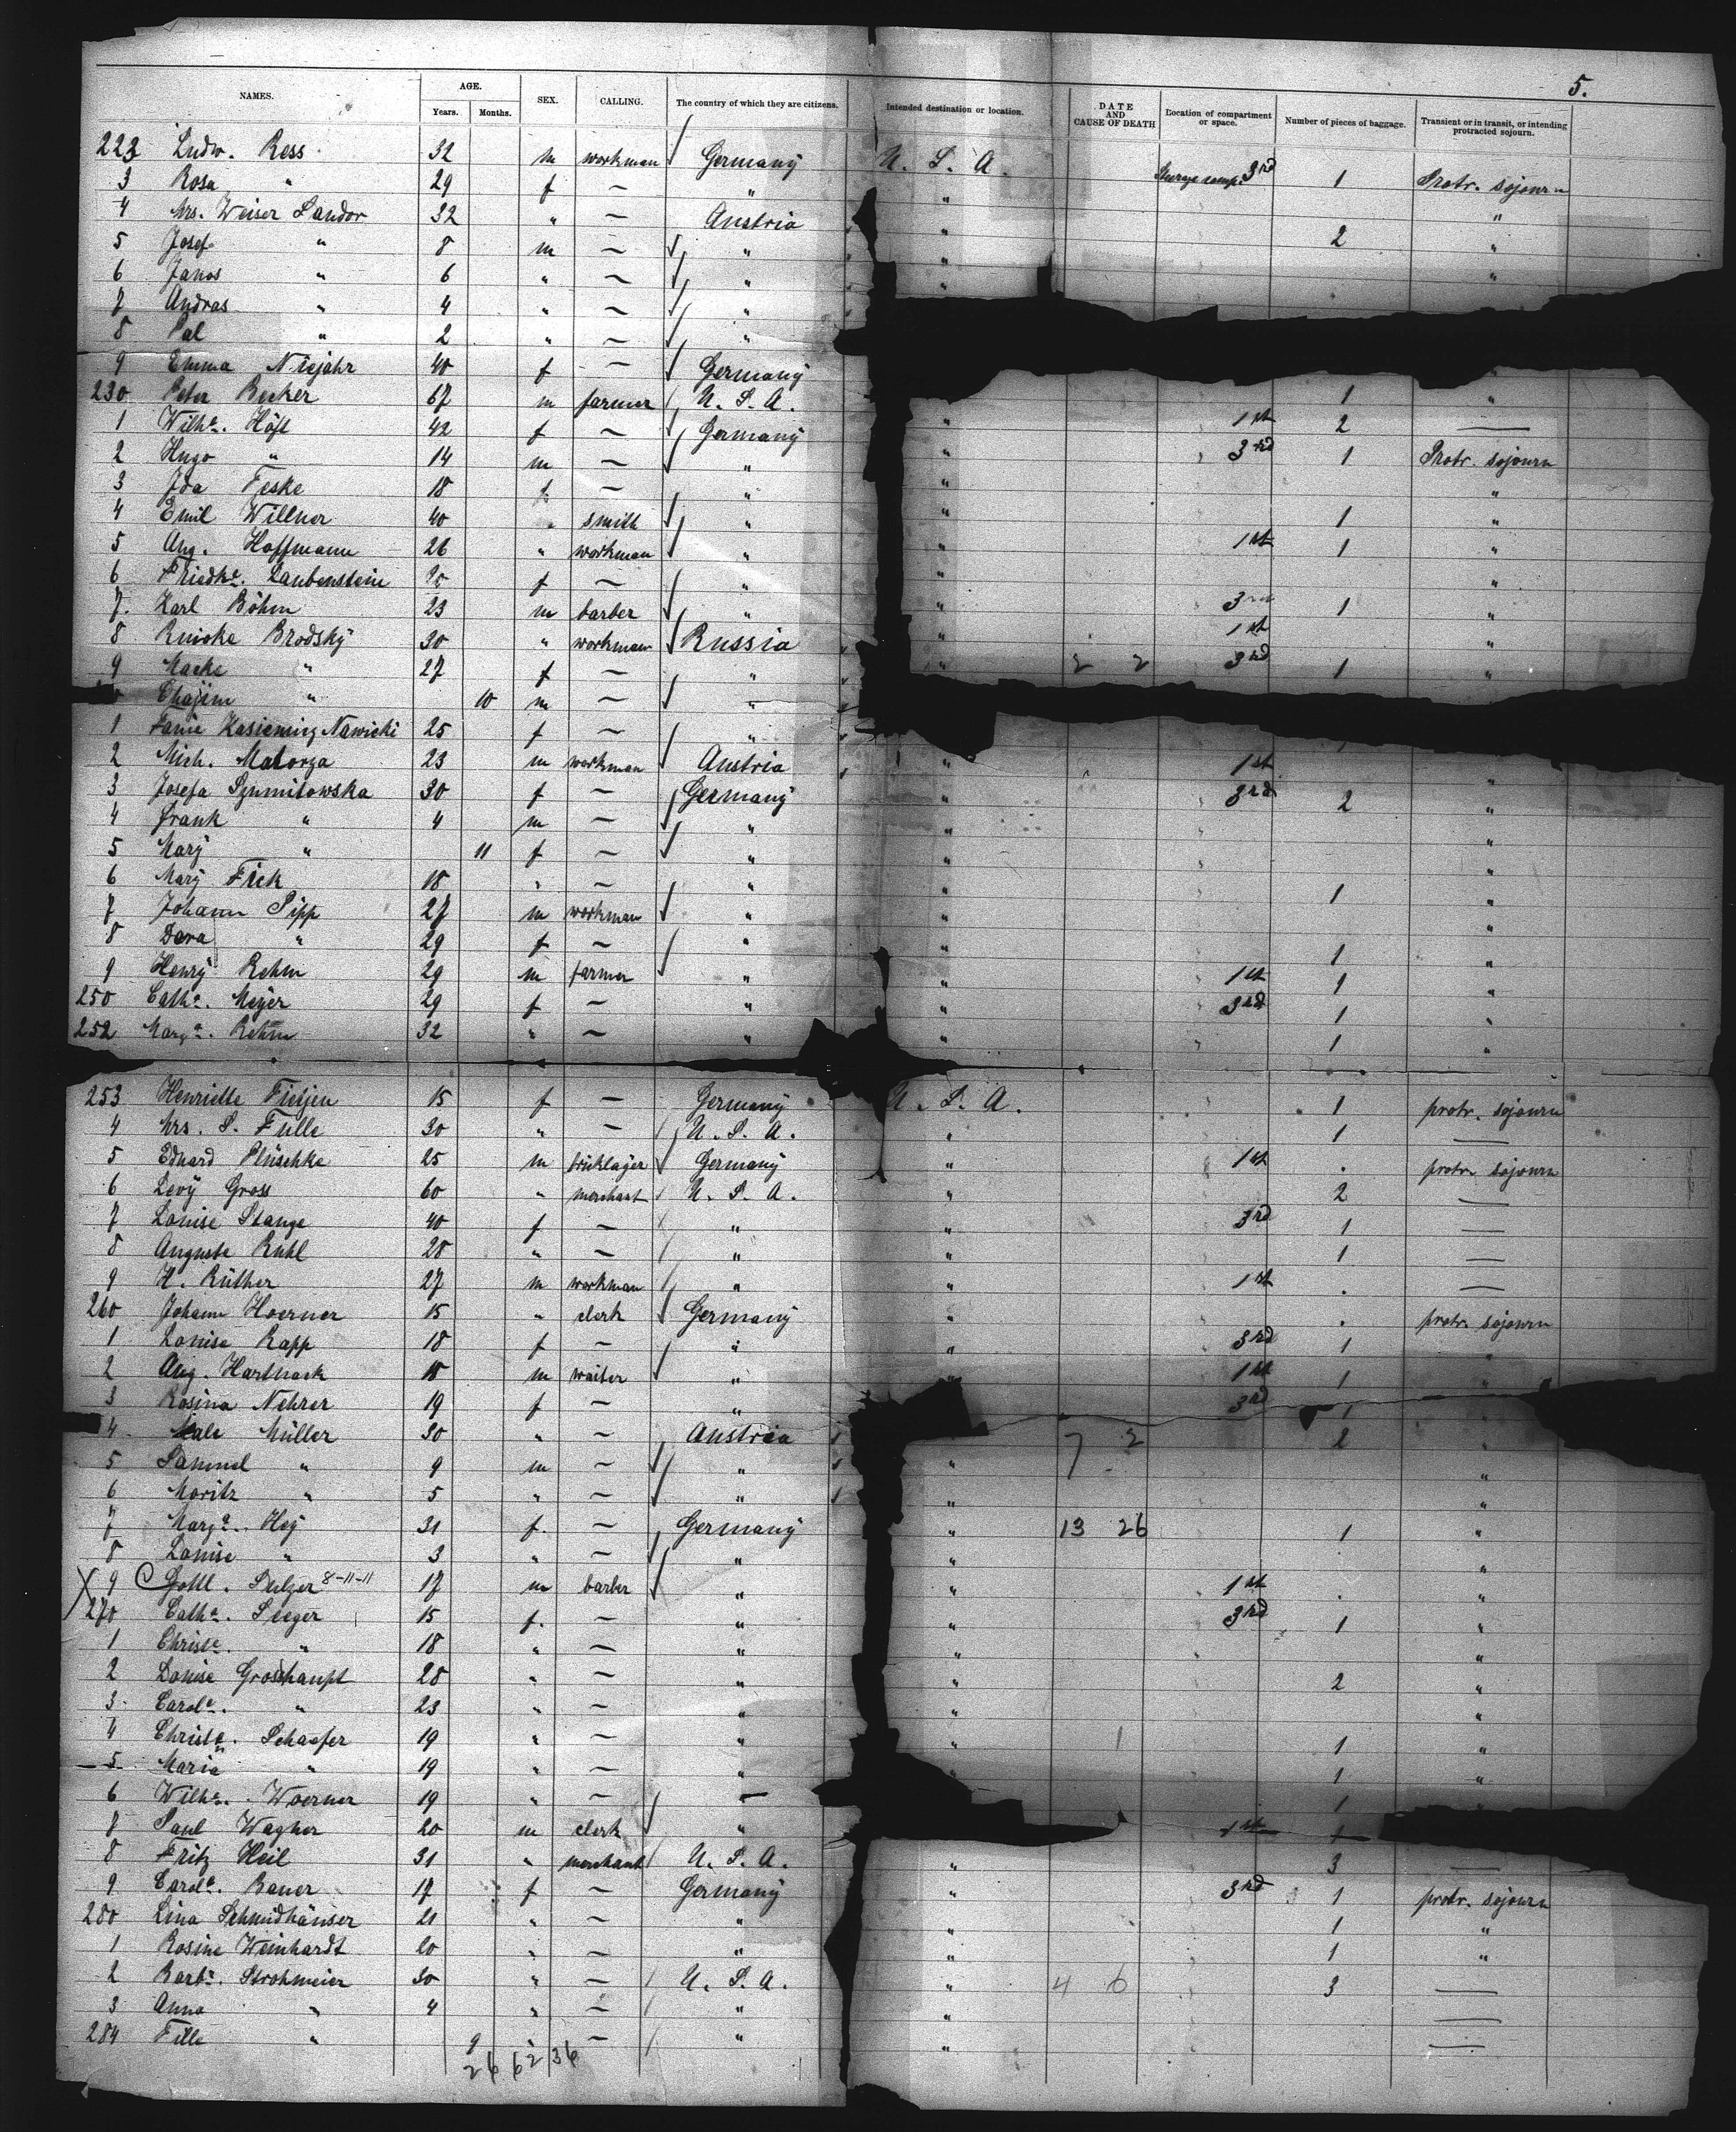 5.
NAMES. AGE. Years. Months. SEX. CALLING. The country of which they are citizens. Intended destination or location. DATE AND CAUSE OF DEATH Location of compartment or space. Number of pieces of baggage. Transient or in transit, or intending protracted sojourn.
222 Ludw. Ress 32 m workman Germany U. S. A. 3rd 1 Protr. sojourn
3 Rosa " 29 f — " " "
4 Mrs. Weiser Sandor 32 " — Austria " 2 "
5 Josef " 8 m — " " "
6 Janos " 6 " — " "
7 Andras " 4 " — "
8 Pal " 2 " — "
9 Emma Niejahr 40 f — Germany
230 Peter Becker 67 m farmer U. S. A. 1st 2 —
1 Wilhe. Höft 42 f — Germany " 3rd 1 Protr. sojourn
2 Hugo " 14 m — " " "
3 Ida Teske 18 f — " " 1 "
4 Emil Willner 40 " smith " " 1st 1 "
5 Aug. Hoffmann 26 " workman " " "
6 Friedke. Laubenstein f — " " 3rd 1 "
7. Karl Böhm 23 m barber " " 1st "
8 Brodsky 30 " workman Russia " 2 2 3rd 1 "
9 Macke " 27 f — "
Chajem " 10 m — "
1 Nawicki 25 f — "
2 Mich. 23 m workman Austria " 1st "
3 Josefa Szumitowska 30 f — Germany " 3rd 2 "
4 Frank " 4 m — " " "
5 Mary " 11 f — " " "
6 Mary Fick 18 " — " " 1 "
7 Johann Pipp 27 m workman " " "
8 Dora " 29 f — " " 1 "
9 Henry Rehm 29 m farmer " " 1st 1 "
250 Cathe. Meyer 29 f — " " 3rd 1 "
252 Marga. Rehm 32 " — " " 1 "
253 Henriette Fietjen 15 f — Germany U. S. A. 1 protr. sojourn
4 Mrs. S. Fülle 30 " — U. S. A. " 1 —
5 Eduard Plüschke 25 m bricklayer Germany " 1st . protr. sojourn
6 Levy Gross 60 " merchant U. S. A. " 2 —
7 Louise Stange 40 f — " " 3rd 1 —
8 Auguste Ruhl 28 " — " " 1 —
9 H. Rüther 27 m workman " " 1st . —
260 Johann Hoerner 15 " clerk Germany " . protr. sojourn
1 Louise Rapp 18 f — " " 3rd 1 "
2 Aug. Hartnack 18 m waiter " " 1st 1 "
3 Rosina Nehrer 19 f — " 3rd 1 "
4 Male Müller 30 " — Austria 7 2 2 "
5 Samuel " 9 m — " " "
6 Moritz " 5 " — " " "
7 Marga. Hey 31 f. — Germany " 13 26 1 "
8 Louise " 3 " — " " . "
9 Gottl. Sulzer 8-11-11 17 m barber " " 1st . "
270 Cathe. Seeger 15 f. — " " 3rd 1 "
1 Christe. " 18 " — " " "
2 Louise Grosshaupt 28 " — " " 2 "
3 Carole. " 23 " — " " "
4 Christe. Schaefer 19 " — " " 1 1 "
5 Maria " 19 " — " " 1 "
6 Wilhe. Woerner 19 " — " 1 "
7 Paul Wagner 20 m clerk " 1st 1
8 Fritz Heil 31 " merchant U. S. A. " 3 —
9 Carole. Bauer 17 f — Germany " 3rd 1 protr. sojourn
280 Lina Schmidhäuser 21 " — " " 1 "
1 Rosine Weinhardt 20 " — " " 1 "
2 Barba. Strohmeier 30 " — U. S. A. " 4 6 3 —
3 Anna " 4 " — " " —
284 Tille " 9 " — " " —
26 62 36